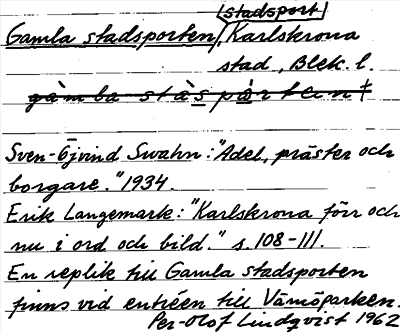 stadsport
Gamla stadsporten, Karlskrona
stad, Blek. l.
gàmba stàspàrten†
Sven-Öjvind Swahn: "Adel, präster och
borgare." 1934.
Erik Langemark: "Karlskrona förr och
nu i ord och bild." s. 108-111.
En replik till Gamla stadsporten
finns vid entréen till Vämöparken.
Per-Olof Lindqvist 1962